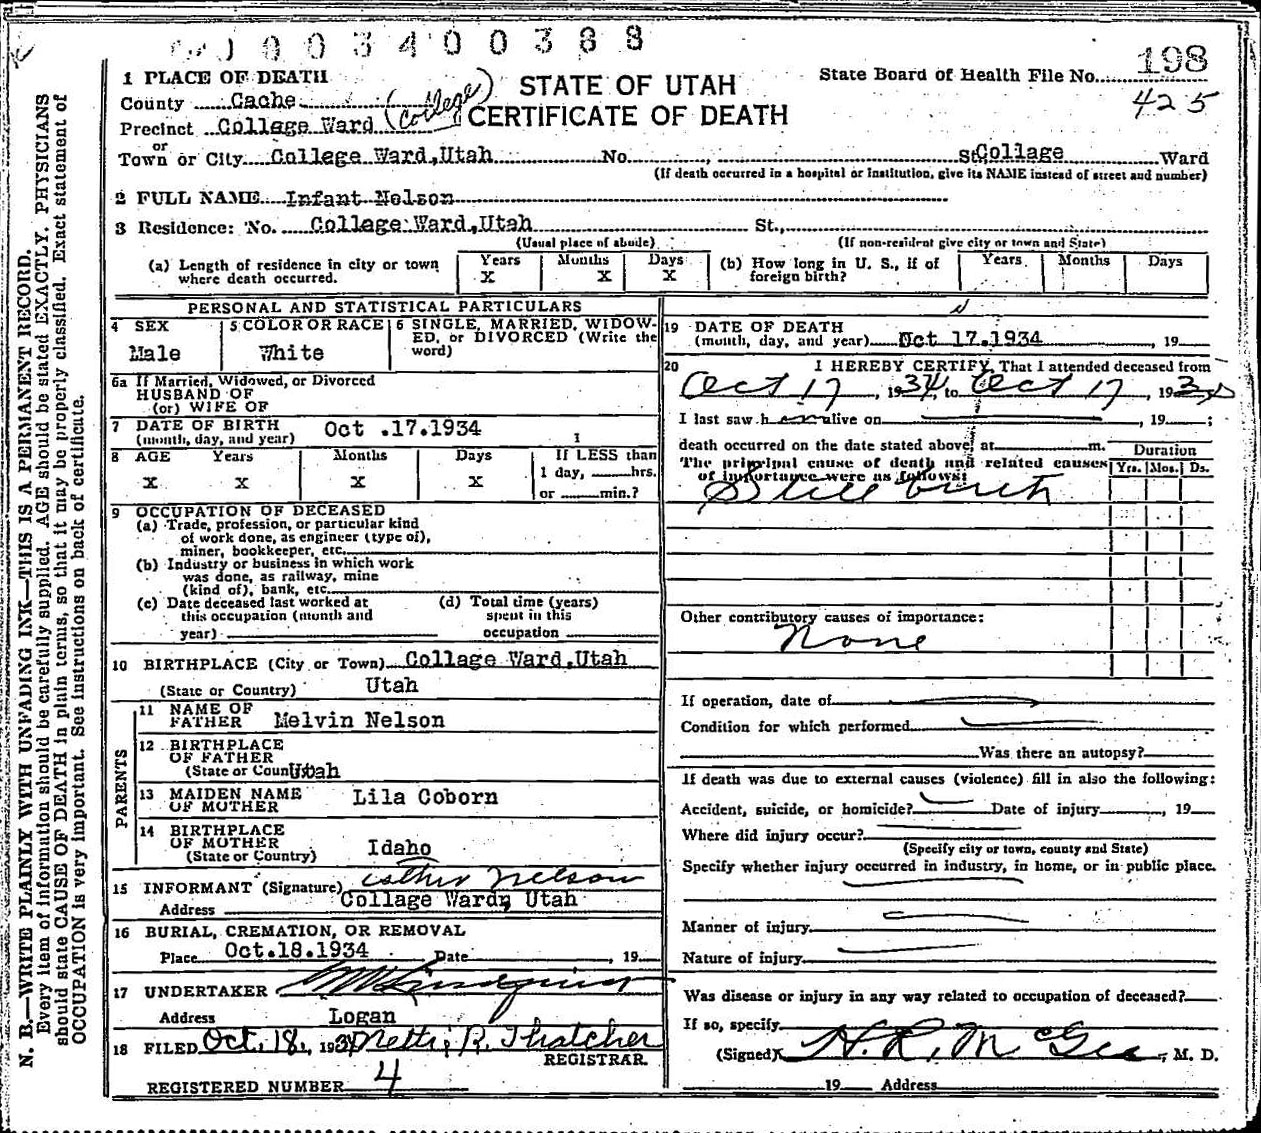 003400388
198
1 PLACE OF DEATH
STATE OF UTAH
State Board of Health File No.
County Cache (College)
425
CERTIFICATE OF DEATH
Precinct Collage Ward
or
Town or City Collage Ward,Utah No. St. Collage Ward
(If death occurred in a hospital or institution, give its NAME instead of street and number)
2 FULL NAME Infant Nelson
3 Residence: No. Collage Ward,Utah St.,
(Usual place of abode) (If non-resident give city or town and State)
(a) Length of residence in city or town where death occurred. Years X Months X Days X
(b) How long in U. S., if of foreign birth? Years Months Days
PERSONAL AND STATISTICAL PARTICULARS
4 SEX Male
5 COLOR OR RACE White
6 SINGLE, MARRIED, WIDOWED, or DIVORCED (Write the word)
6a If Married, Widowed, or Divorced
HUSBAND OF
(or) WIFE OF
7 DATE OF BIRTH
(month, day, and year) Oct .17.1934
8 AGE Years Months Days If LESS than
X X X X 1 day, hrs.
or min.?
9 OCCUPATION OF DECEASED
(a) Trade, profession, or particular kind
of work done, as engineer (type of),
miner, bookkeeper, etc.
(b) Industry or business in which work
was done, as railway, mine
(kind of), bank, etc.
(c) Date deceased last worked at
this occupation (month and
year)
(d) Total time (years)
spent in this
occupation
10 BIRTHPLACE (City or Town) Collage Ward,Utah
(State or Country) Utah
PARENTS
11 NAME OF
FATHER Melvin Nelson
12 BIRTHPLACE
OF FATHER
(State or Coun Utah
13 MAIDEN NAME
OF MOTHER Lila Coborn
14 BIRTHPLACE
OF MOTHER
(State or Country) Idaho
15 INFORMANT (Signature) Esther Nelson
Address Collage Ward, Utah
16 BURIAL, CREMATION, OR REMOVAL
Place Oct.18.1934 Date , 19
17 UNDERTAKER W Lindquist
Address Logan
18 FILED Oct. 18, 1934 Nettie R. Thatcher
REGISTRAR.
REGISTERED NUMBER 4
19 DATE OF DEATH
(month, day, and year) Oct 17.1934 , 19
20 I HEREBY CERTIFY, That I attended deceased from
Oct 17, 1934, to Oct 17, 193
I last saw h alive on , 19 ;
death occurred on the date stated above, at m.
The principal cause of death and related causes
of importance were as follows:
Duration
Yrs. Mos. Ds.
Still birth
Other contributory causes of importance:
None
If operation, date of
Condition for which performed
Was there an autopsy?
If death was due to external causes (violence) fill in also the following:
Accident, suicide, or homicide? Date of injury , 19
Where did injury occur?
(Specify city or town, county and State)
Specify whether injury occurred in industry, in home, or in public place.
Manner of injury
Nature of injury
Was disease or injury in any way related to occupation of deceased?
If so, specify
(Signed) H. R. McGee, M. D.
19 Address
N. B.—WRITE PLAINLY WITH UNFADING INK—THIS IS A PERMANENT RECORD.
Every item of information should be carefully supplied. AGE should be stated EXACTLY. PHYSICIANS
should state CAUSE OF DEATH in plain terms, so that it may be properly classified. Exact statement of
OCCUPATION is very important. See instructions on back of certificate.